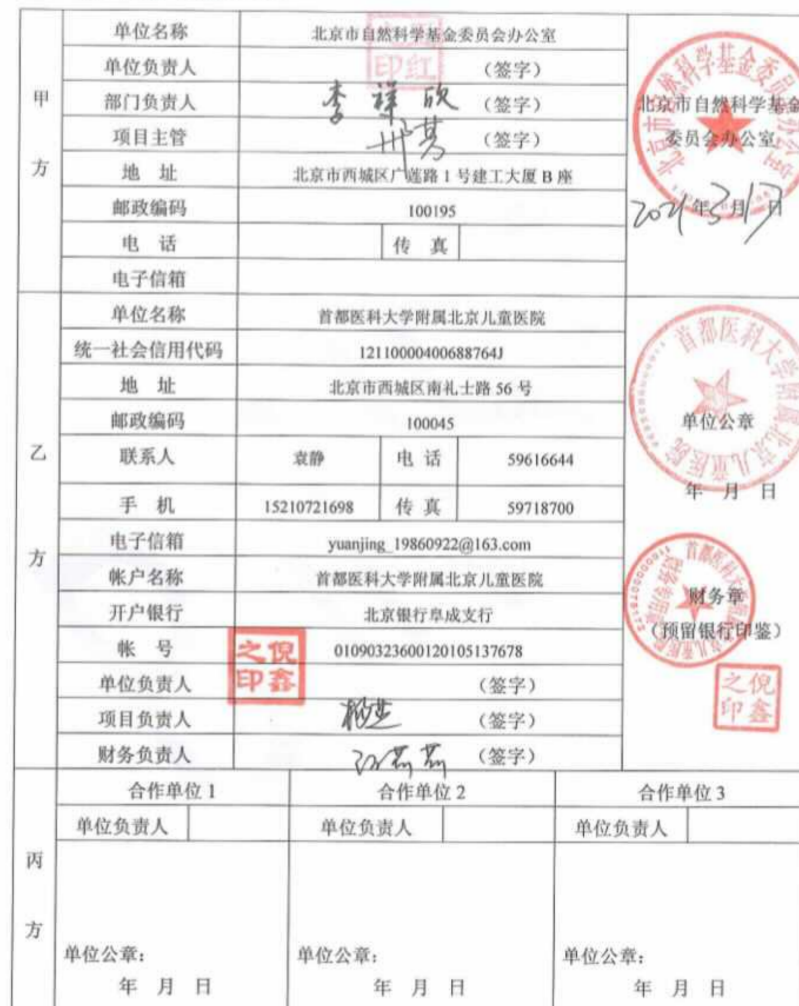 甲方
单位名称 北京市自然科学基金委员会办公室
单位负责人 （签字）
部门负责人 李祥欣 （签字）
项目主管 （签字）
地 址 北京市西城区广莲路 1 号建工大厦 B 座
邮政编码 100195
电 话 传 真
电子信箱
北京市自然科学基金
委员会办公室
2021年3月17日
乙方
单位名称 首都医科大学附属北京儿童医院
统一社会信用代码 12110000400688764J
地 址 北京市西城区南礼士路 56 号
邮政编码 100045
联系人 袁静 电 话 59616644
手 机 15210721698 传 真 59718700
电子信箱 yuanjing_19860922@163.com
帐户名称 首都医科大学附属北京儿童医院
开户银行 北京银行阜成支行
帐 号 01090323600120105137678
单位负责人 （签字）
倪鑫之印
项目负责人 （签字）
财务负责人 （签字）
首都医科大学附属北京儿童医院
单位公章
年 月 日
首都医科大学附属北京儿童医院
财务章
（预留银行印鉴）
倪鑫之印
丙方
合作单位 1 合作单位 2 合作单位 3
单位负责人 单位负责人 单位负责人
单位公章： 单位公章： 单位公章：
年 月 日 年 月 日 年 月 日